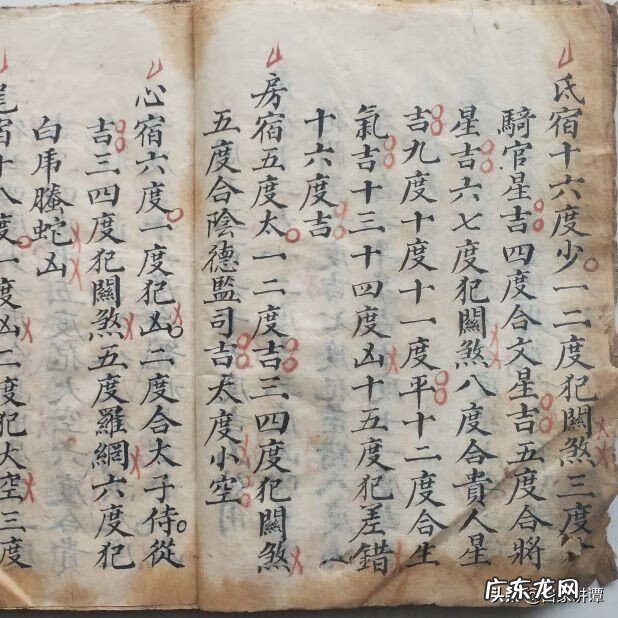 氐宿十六度少一二度犯關煞三度
騎官星吉四度合文星吉五度合將
星吉六七度犯關煞八度合貴人星
吉九度十度十一度平十二度合生
氣吉十三十四度凶十五度犯差錯
十六度吉
房宿五度太一二度吉三四度犯關煞
五度合陰德監司吉太度小空
心宿六度一度犯凶二度合太子侍從
吉三四度犯關煞五度羅網六度犯
白虎螣蛇凶
尾宿十八度一度凶二度犯大空三度
广东龙网